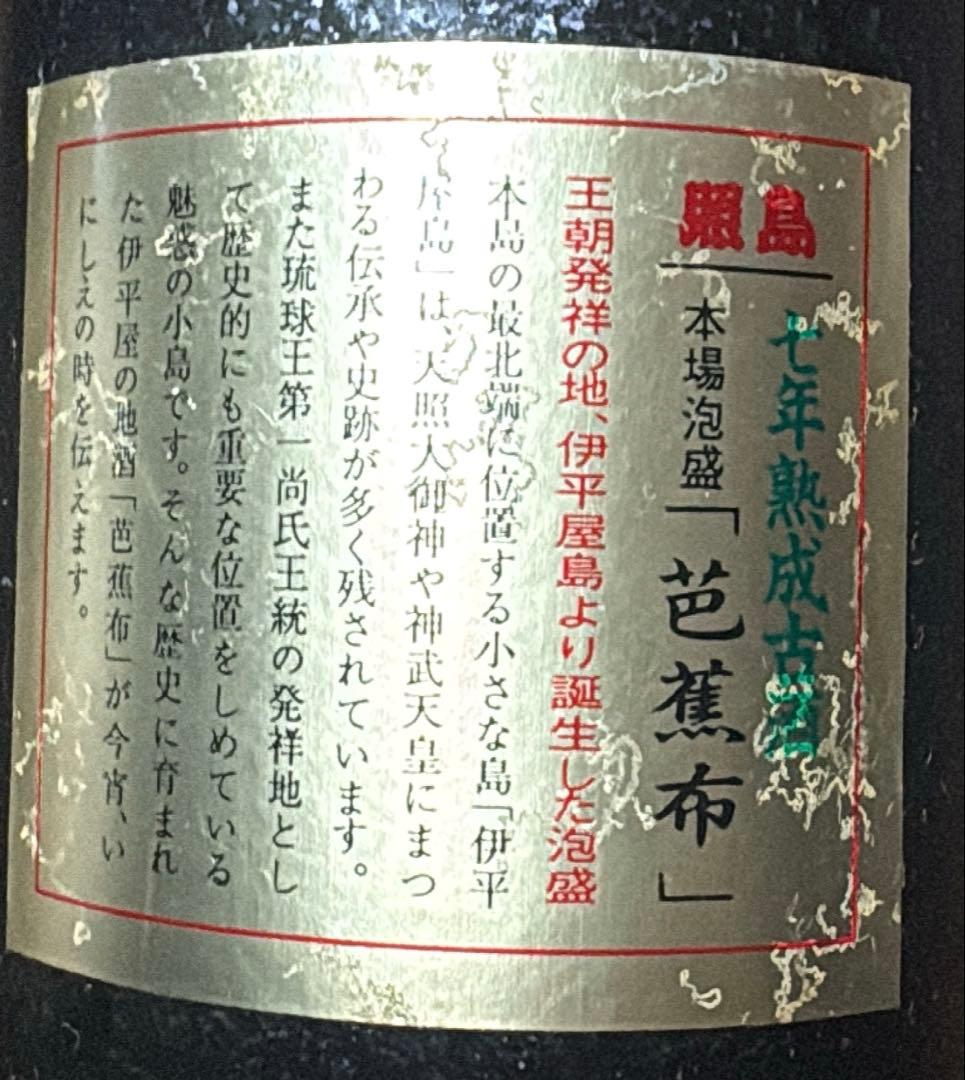 照島
七年熟成古酒
本場泡盛「芭蕉布」
王朝発祥の地、伊平屋島より誕生した泡盛
本島の最北端に位置する小さな島「伊平
屋島」は、天照大御神や神武天皇にまつ
わる伝承や史跡が多く残されています。
また琉球王第一尚氏王統の発祥地とし
て歴史的にも重要な位置をしめている
魅惑の小島です。そんな歴史に育まれ
た伊平屋の地酒「芭蕉布」が今宵、い
にしえの時を伝えます。